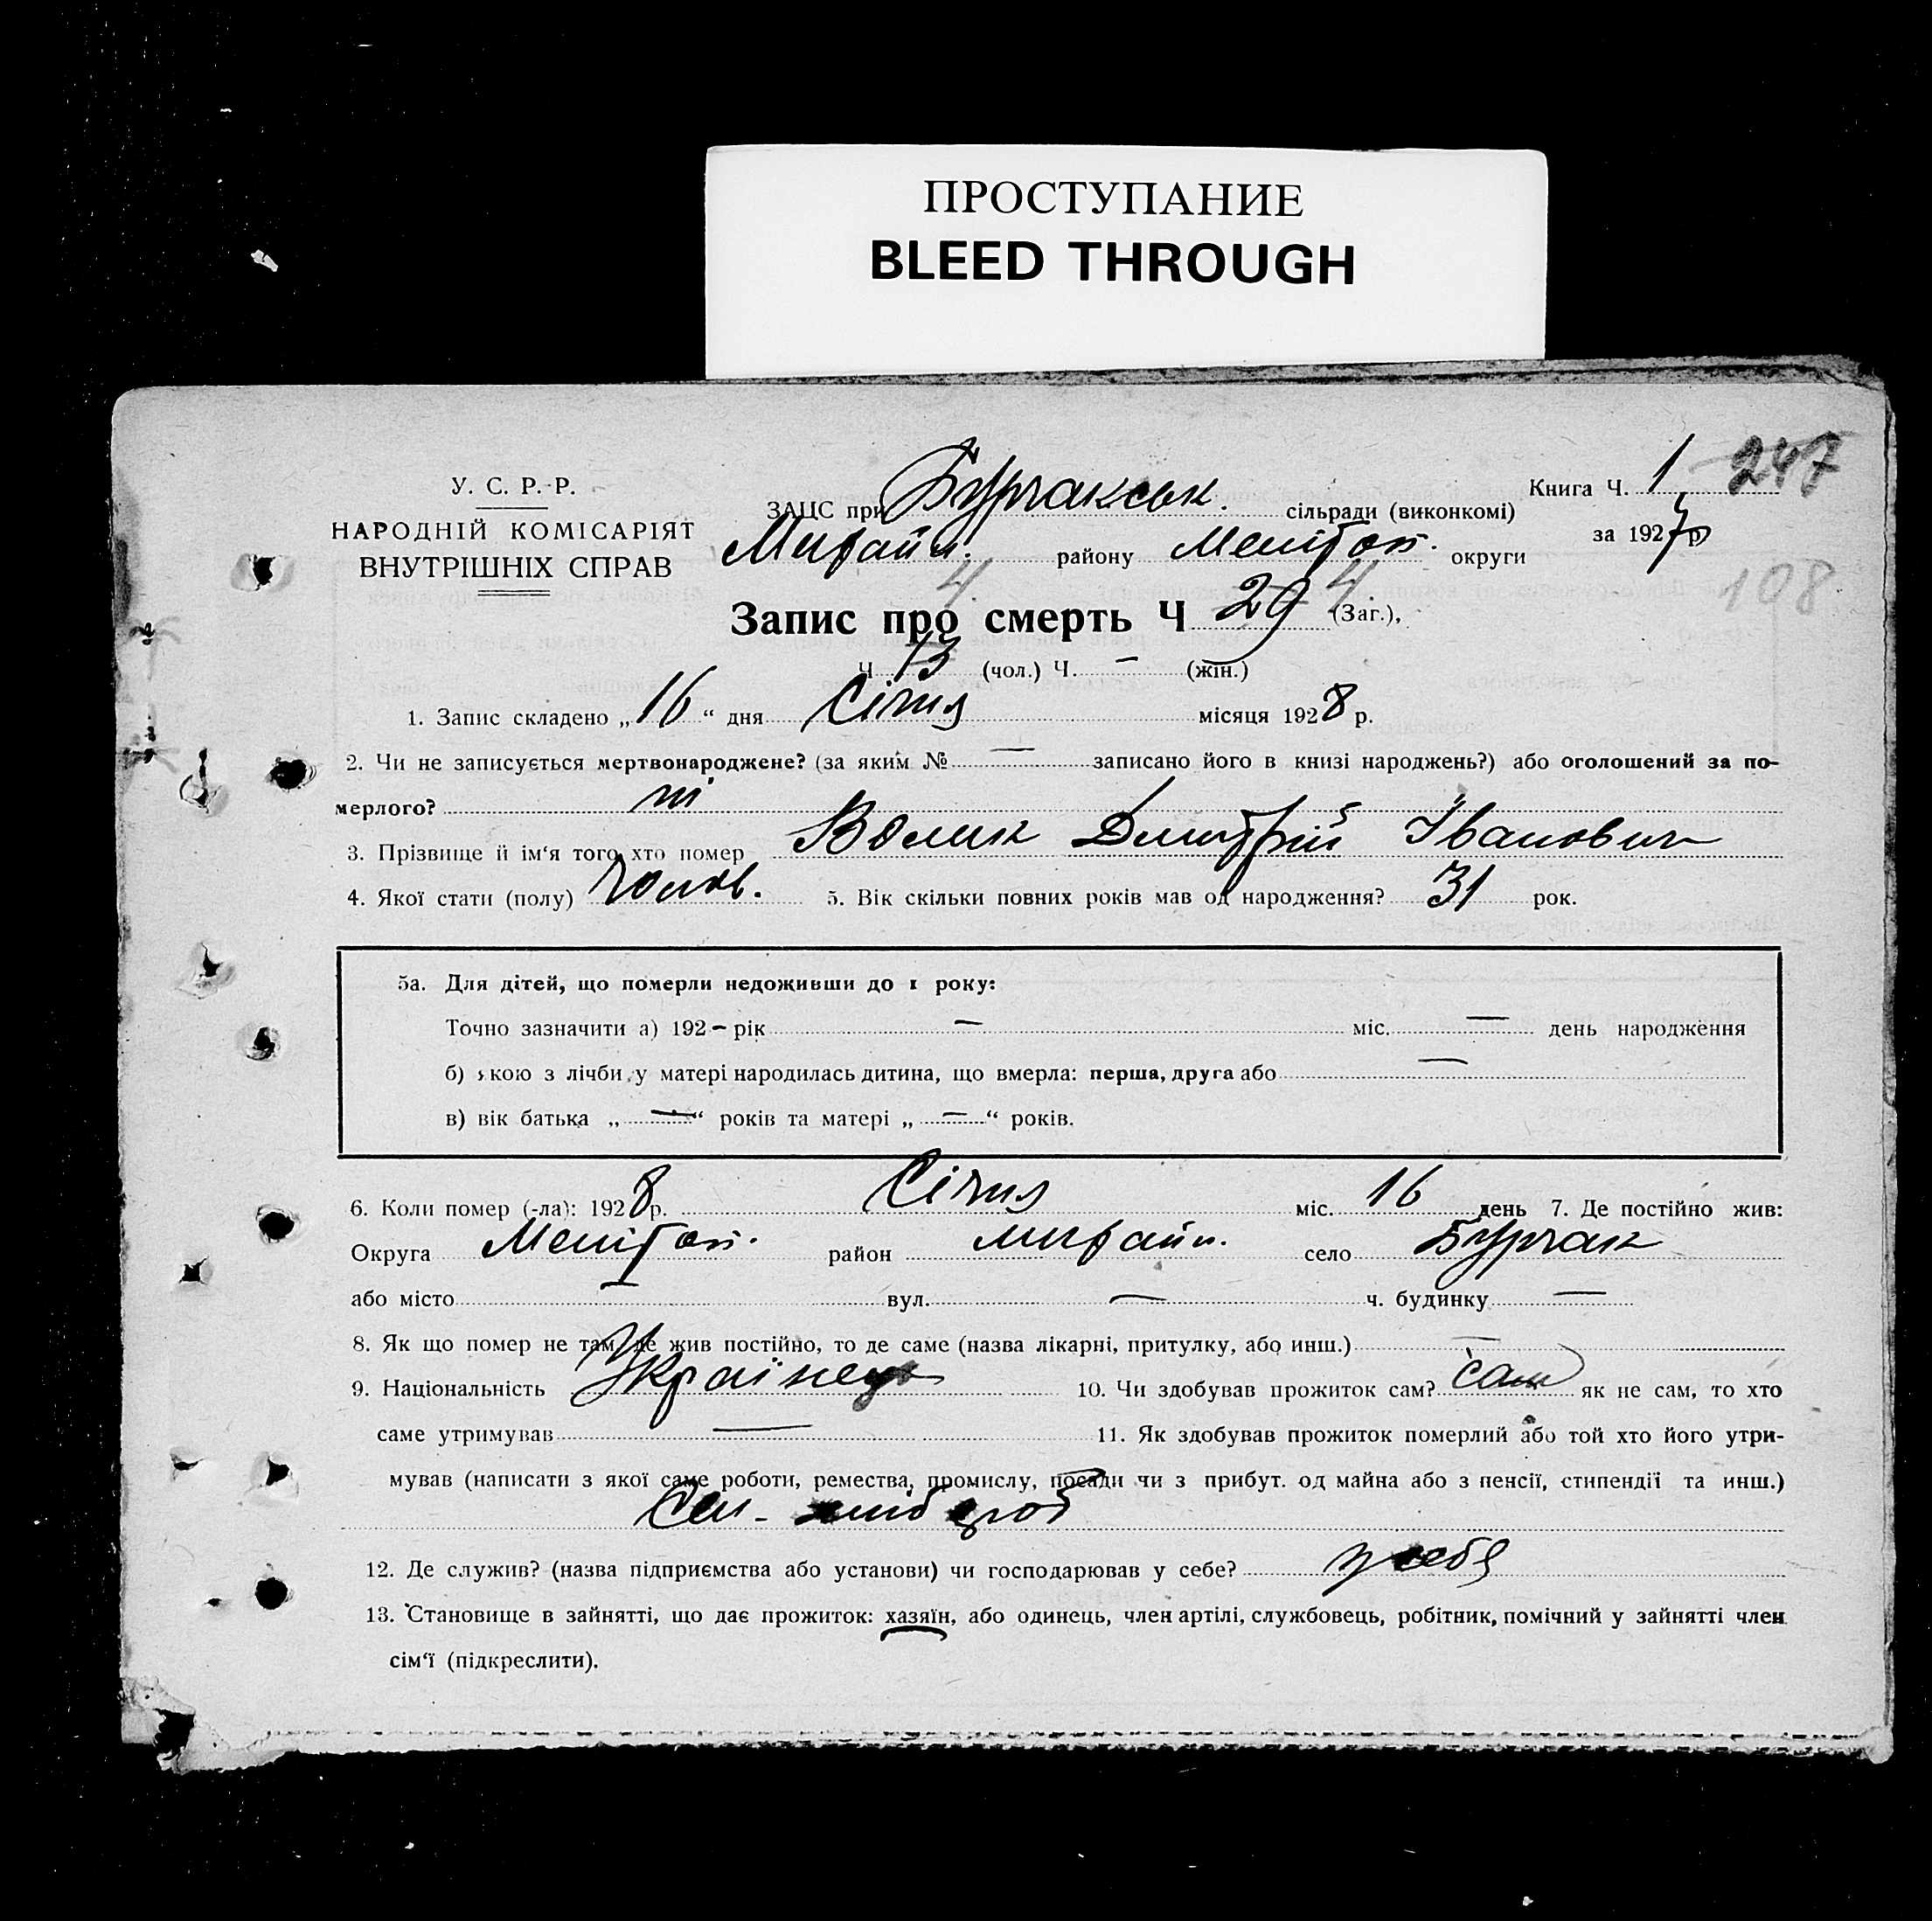 ПРОСТУПАНИЕ
BLEED THROUGH
У. С. Р.-Р.
НАРОДНІЙ КОМІСАРІЯТ
ВНУТРІШНІХ СПРАВ
Книга Ч. 1 247
ЗАЦС при Бурчакськ. сільради (виконкомі)
за 1927 р
Михайл. району Меліτоп. округи
108
Запис про смерть Ч 29 (Заг.),
4. 4.
Ч 13 (чол.) Ч. — (жін.)
1. Запис складено „16“ дня Січня місяця 1928 р.
2. Чи не записується мертвонароджене? (за яким № — записано його в книзі народжень?) або оголошений за по-
мерлого? ні
3. Прізвище й ім‘я того хто помер Дмитрій Іванович
4. Якої стати (полу) чолов. 5. Вік скільки повних років мав од народження? 31 рок.
5а. Для дітей, що померли недоживши до 1 року:
Точно зазначити а) 192 – рік — міс. — день народження
б) якою з лічби у матері народилась дитина, що вмерла: перша, друга або —
в) вік батька „—“ років та матері „—“ років.
6. Коли помер (-ла): 1928 р. Січня міс. 16 день 7. Де постійно жив:
Округа Мелітоп. район михайл. село Бурчак
або місто — вул. — ч. будинку —
8. Як що помер не там, де жив постійно, то де саме (назва лікарні, притулку, або инш.) —
9. Національність Українець 10. Чи здобував прожиток сам? сам як не сам, то хто
саме утримував — 11. Як здобував прожиток померлий або той хто його утри-
мував (написати з якої саме роботи, ремества, промислу, посади чи з прибут. од майна або з пенсії, стипендії та инш.)
Сел- хлібороб
12. Де служив? (назва підприємства або установи) чи господарював у себе? у себе
13. Становище в зайнятті, що дає прожиток: хазяїн, або одинець, член артілі, службовець, робітник, помічний у зайнятті член
сім‘ї (підкреслити).